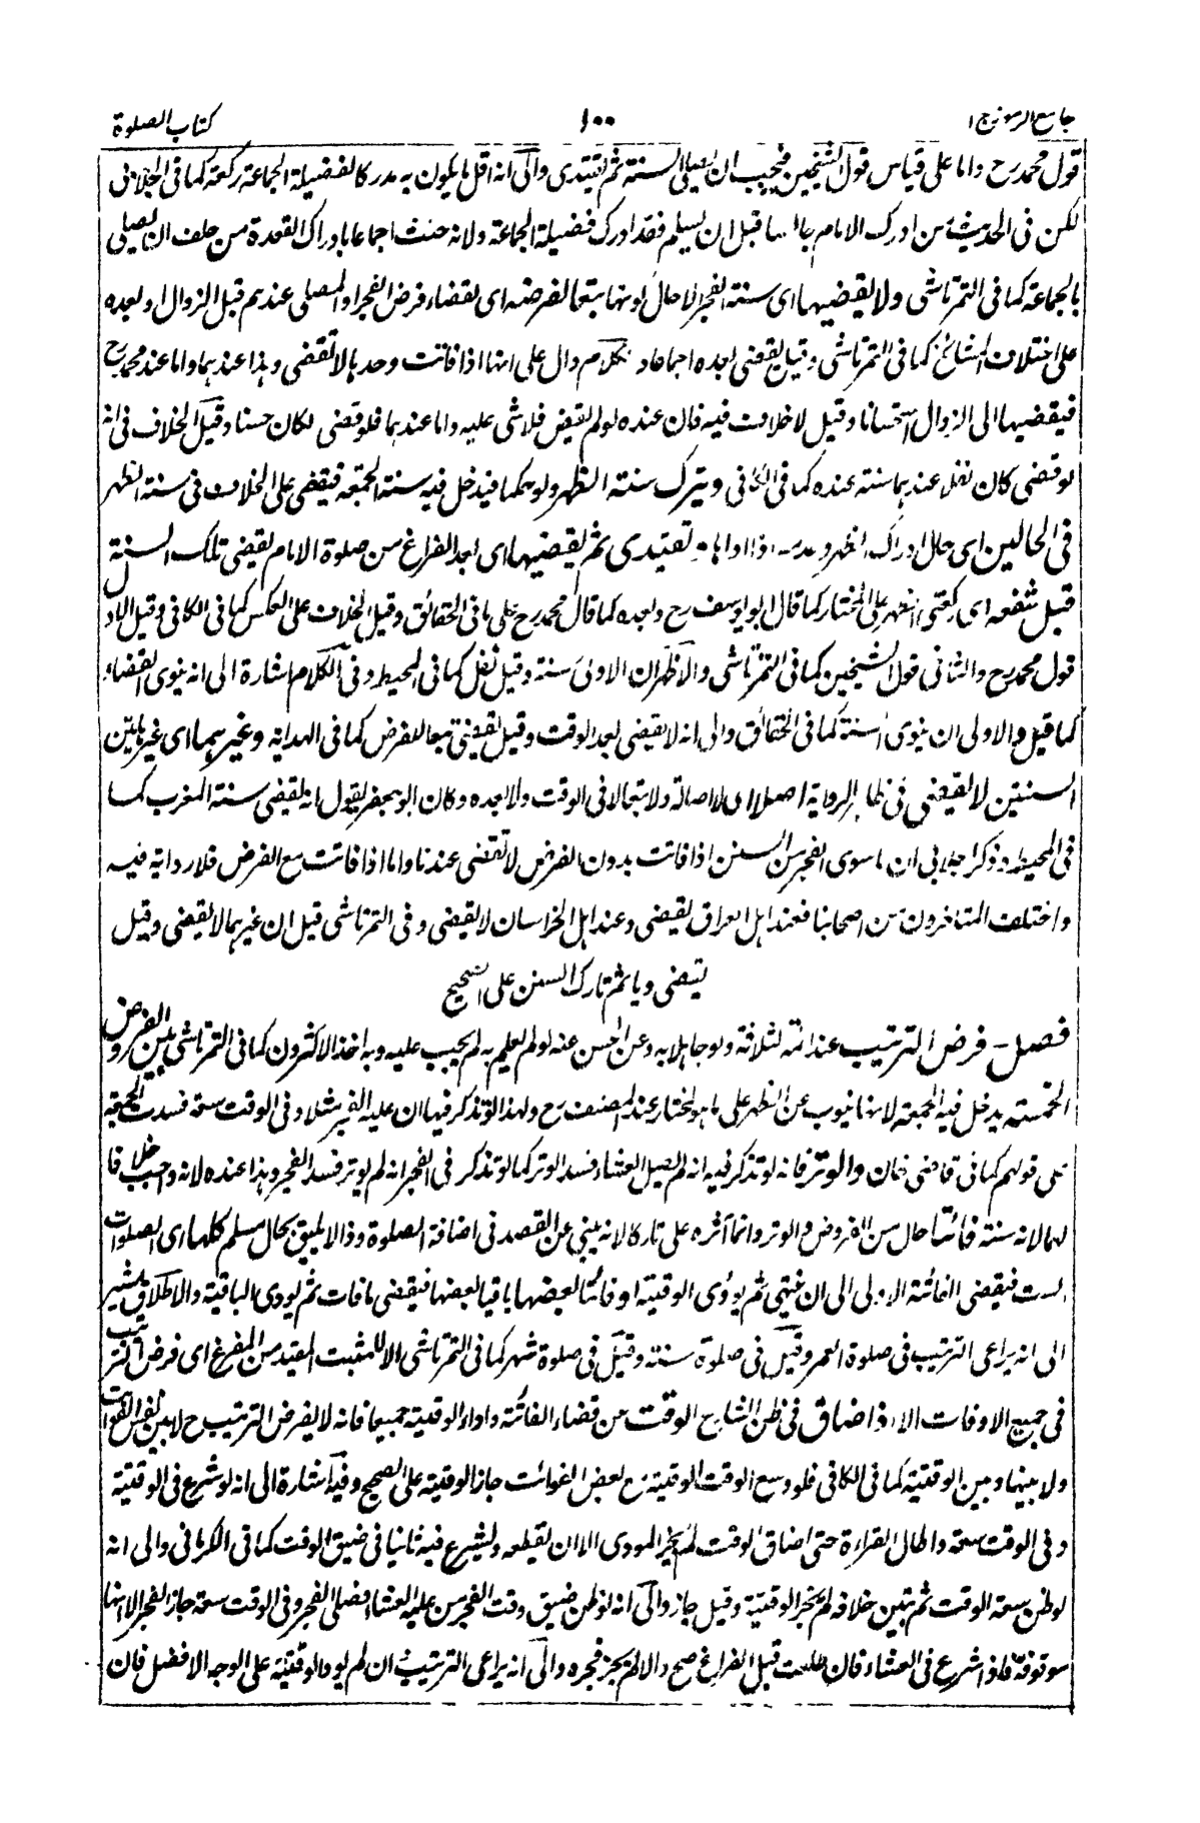 جامع الرموز ج ا
١٠٠
كتاب الصلوة
قول محمد رح واما على قياس قول الشيخين فيجب ان يصلى السنة ثم يقتدى والى انه اقل ما يكون به مدركا لفضيلة الجماعة ركعة كما فى الجلابى
لكن فى الحديث من ادرك الامام قبل ان يسلم فقد ادرك فضيلة الجماعة ولانه حنث اجماعا بادراك القعدة من حلف ان يصلى
بالجماعة كما فى التمرتاشى ولا يقضيها اى سنة الفجر الا حال كونها تبعا لفرضه اى لقضاء فرض الفجر او المصلى عندهم قبل الزوال او بعده
على اختلاف المشائخ كما فى التمرتاشى وقيل يقضى بعده اجماعا والكلام دال على انها اذا فاتت وحدها لا تقضى وهذا عندهما واما عند محمد رح
فيقضيها الى الزوال استحسانا وقيل لا خلاف فيه فان عنده لو لم يقض فلا شى عليه واما عندهما فلو قضى لكان حسنا وقيل الخلاف فى انه
لو قضى كان نفل عندهما سنة عنده كما فى الكافى ويترك سنة الظهر ولو حكما فيدخل فيه سنة الجمعة فيقضى على الخلاف فى سنة الظهر
فى الحالين اى حال ادراك الظهر يقتدى ثم يقضيها اى بعد الفراغ من صلوة الامام يقضى تلك السنة
قبل شفعه اى ركعتى الظهر على المختار كما قال ابو يوسف رح وبعده كما قال محمد رح على ما فى الحقائق وقيل الخلاف على العكس كما فى الكافى وقيل الاول
قول محمد رح والثانى قول الشيخين كما فى التمرتاشى والاظهر ان الاولى سنة وقيل نفل كما فى المحيط وفى الكلام اشارة الى انه ينوى القضاء
كما قيل والاولى ان ينوى السنة كما فى الحقائق والى انه لا يقضى بعد الوقت وقيل يقضى تبعا للفرض كما فى الهداية وغيرهما اى غير هاتين
السنتين لا يقضى فى ظاهر الرواية اصلا اى لا اصالة ولا تبعا لا فى الوقت ولا بعده وكان ابو جعفر يقول انه يقضى سنة المغرب كما
فى المحيط وذكر الجلابى ان ما سوى الفجر من السنن اذا فاتت بدون الفرض لا تقضى عندنا واما اذا فاتت مع الفرض فلا رواية فيه
واختلف المتاخرون من اصحابنا فعند اهل العراق يقضى وعند اهل الخراسان لا يقضى وفى التمرتاشى قيل ان غيرهما لا يقضى وقيل
يقضى وياثم تارك السنن على الصحيح
فصل - فرض الترتيب عند ائمة لثلاثة ولو جاهلا به وعن الحسن عنه لو لم يعلم به لم يجب عليه وبه اخذ الاكثرون كما فى التمرتاشى بين الفروض
الخمسة يدخل فيه الجمعة لانها ينوب عن الظهر على ما هو المختار عند المصنف رح ولهذا لو تذكر فيها ان عليه الفجر مثلا وفى الوقت سعة فسدت الجمعة
على قولهم كما فى قاضى خان والوتر فانه لو تذكر فيه انه لم يصل العشاء فسد الوتر كما لو تذكر فى الفجر انه لم يوتر فسد الفجر وهذا عنده لانه واجب خلافا
لهما لانه سنة فائتا حال من الفروض والوتر وانما آثره على تاركا لانه ينبى عن القصد فى اضافة الصلوة وذا لا يليق بحال مسلم كلها اى الصلوات
الست فيقضى الفائتة الاولى الى ان ينتهى ثم يودى الوقتية او فائتا بعضها باقيا بعضها فيقضى ما فات ثم يودى الباقية والاطلاق مشير
الى انه يراعى الترتيب فى صلوة العمر وقيل فى صلوة سنة وقيل فى صلوة شهر كما فى التمرتاشى الا للمثبت المقيد من المفرغ اى فرض الترتيب
فى جميع الاوقات الا اذا ضاق فى ظن الشارع الوقت عن قضاء الفائتة واداء الوقتية جميعا فانه لا يفرض الترتيب ح لا بين نفس الفوائت
ولا بينها وبين الوقتية كما فى الكافى فلو وسع الوقت الوقتية مع بعض الفوائت جاز الوقتية على الصحيح وفيه اشارة الى انه لو شرع فى الوقتية
وفى الوقت سعة واطال القراءة حتى اضاق الوقت لم يجز المودى الا ان يقطعه ويشرع فيه ثانيا فى ضيق الوقت كما فى الكرمانى والى انه
لو ظن سعة الوقت ثم تبين خلافه لم يجز الوقتية وقيل جاز والى انه لو ظن ضيق وقت الفجر من عليه العشاء فصلى الفجر وفى الوقت سعة جاز الفجر الا انها
موقوفة فاذا شرع فى العشاء فان طلعت قبل الفراغ صح والا لم يجز فجره والى انه يراعى الترتيب ان لم يود الوقتية على الوجه الافضل فان